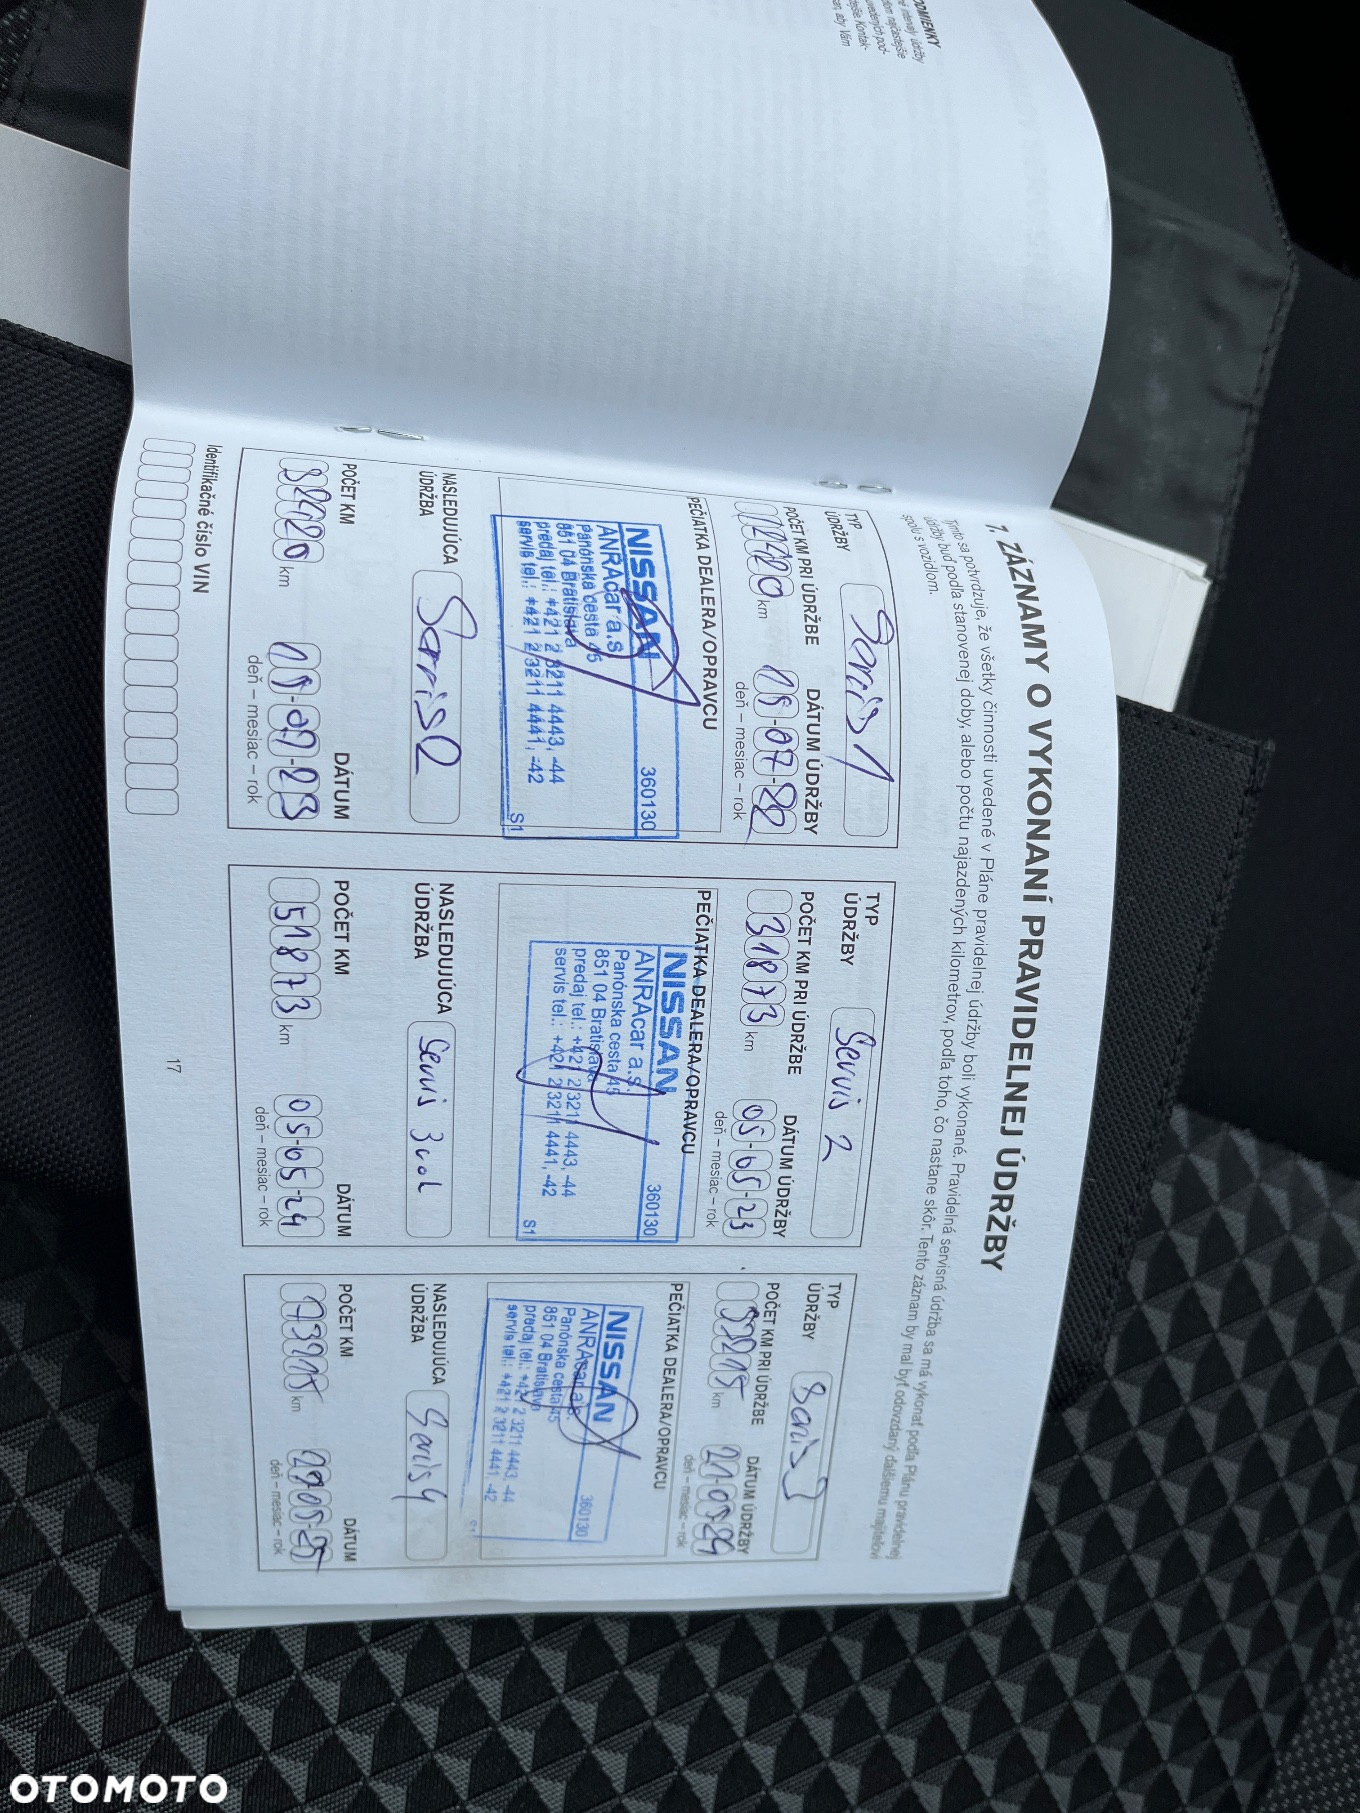 ODMIENKY
7. ZÁZNAMY O VYKONANÍ PRAVIDELNEJ ÚDRŽBY
Týmto sa potvrdzuje, že všetky činnosti uvedené v Pláne pravidelnej údržby boli vykonané. Pravidelná servisná údržba sa má vykonať podľa Plánu pravidelnej
údržby buď podľa stanovenej doby, alebo počtu najazdených kilometrov, podľa toho, čo nastane skôr. Tento záznam by mal byť odovzdaný ďalšiemu majiteľovi
spolu s vozidlom.
TYP
ÚDRŽBY
Servis 1
POČET KM PRI ÚDRŽBE
DÁTUM ÚDRŽBY
12220 km
15-07-22
deň – mesiac – rok
PEČIATKA DEALERA/OPRAVCU
NISSAN 360130
ANRAcar a.s.
Panónska cesta 45
851 04 Bratislava
predaj tel.: +421 2 3211 4443, -44
servis tel.: +421 2 3211 4441, -42
S1
NASLEDUJÚCA
ÚDRŽBA
Servis 2
POČET KM
DÁTUM
32220 km
15-07-23
deň – mesiac – rok
TYP
ÚDRŽBY
Servis 2
POČET KM PRI ÚDRŽBE
DÁTUM ÚDRŽBY
31873 km
05-05-23
deň – mesiac – rok
PEČIATKA DEALERA/OPRAVCU
NISSAN 360130
ANRAcar a.s.
Panónska cesta 45
851 04 Bratislava
predaj tel.: +421 2 3211 4443, -44
servis tel.: +421 2 3211 4441, -42
S1
NASLEDUJÚCA
ÚDRŽBA
Servis 3
POČET KM
DÁTUM
51873 km
05-05-24
deň – mesiac – rok
TYP
ÚDRŽBY
Servis 3
POČET KM PRI ÚDRŽBE
DÁTUM ÚDRŽBY
km
deň – mesiac – rok
PEČIATKA DEALERA/OPRAVCU
NISSAN 360130
ANRAcar a.s.
Panónska cesta 45
851 04 Bratislava
predaj tel.: +421 2 3211 4443, -44
servis tel.: +421 2 3211 4441, -42
NASLEDUJÚCA
ÚDRŽBA
Servis 4
POČET KM
DÁTUM
73215 km
deň – mesiac – rok
Identifikačné číslo VIN
17
OTOMOTO